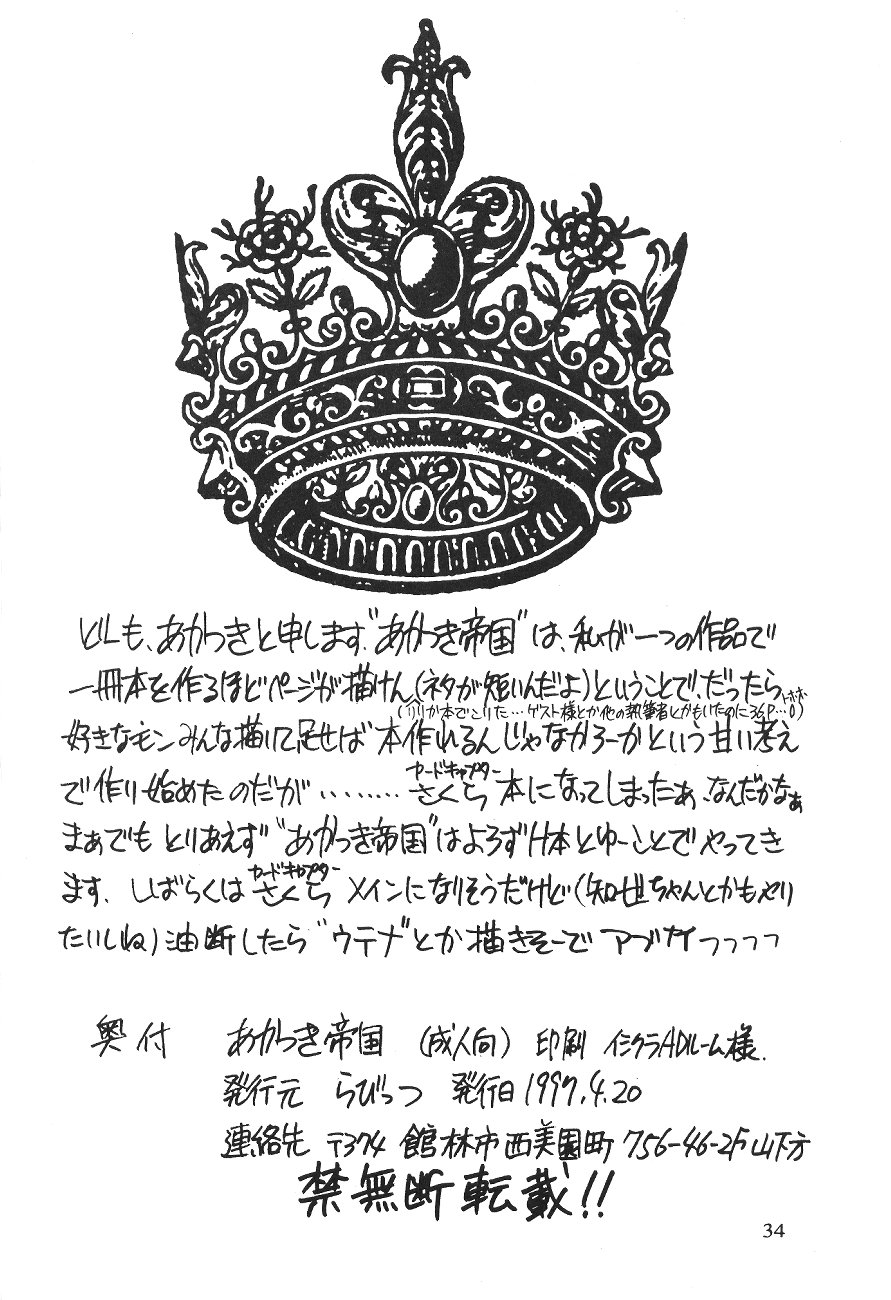 どーも、あかつきと申します。"あかつき帝国"は、私が一つの作品で
一冊本を作るほどページが描けん(ネタが短いんだよ)ということで、だったら
(リリカ本でこりた…ゲスト様とか他の執筆者とかもいたのに36P…0) トホホ
好きなモンみんな描いて足せば 本作れるんじゃなかろーかという甘い考え
で作り始めたのだが ‥‥‥‥ さくら 本になってしまったぁ、なんだかなぁ
カードキャプター
まぁでも とりあえず "あかつき帝国"はよろずH本とゆーことでやってき
ます。しばらくは さくら メインになりそうだけど(知世ちゃんとかもやり
カードキャプター
たいしね)油断したら "ウテナ"とか描きそーで アブナイっっっっ
奥付 あかつき帝国 (成人向) 印刷 イシクラADルーム様.
発行元 らびっつ 発行日 1997.4.20
連絡先 〒374 館林市西美園町 756-46-2F 山下方
禁無断転載!!
34